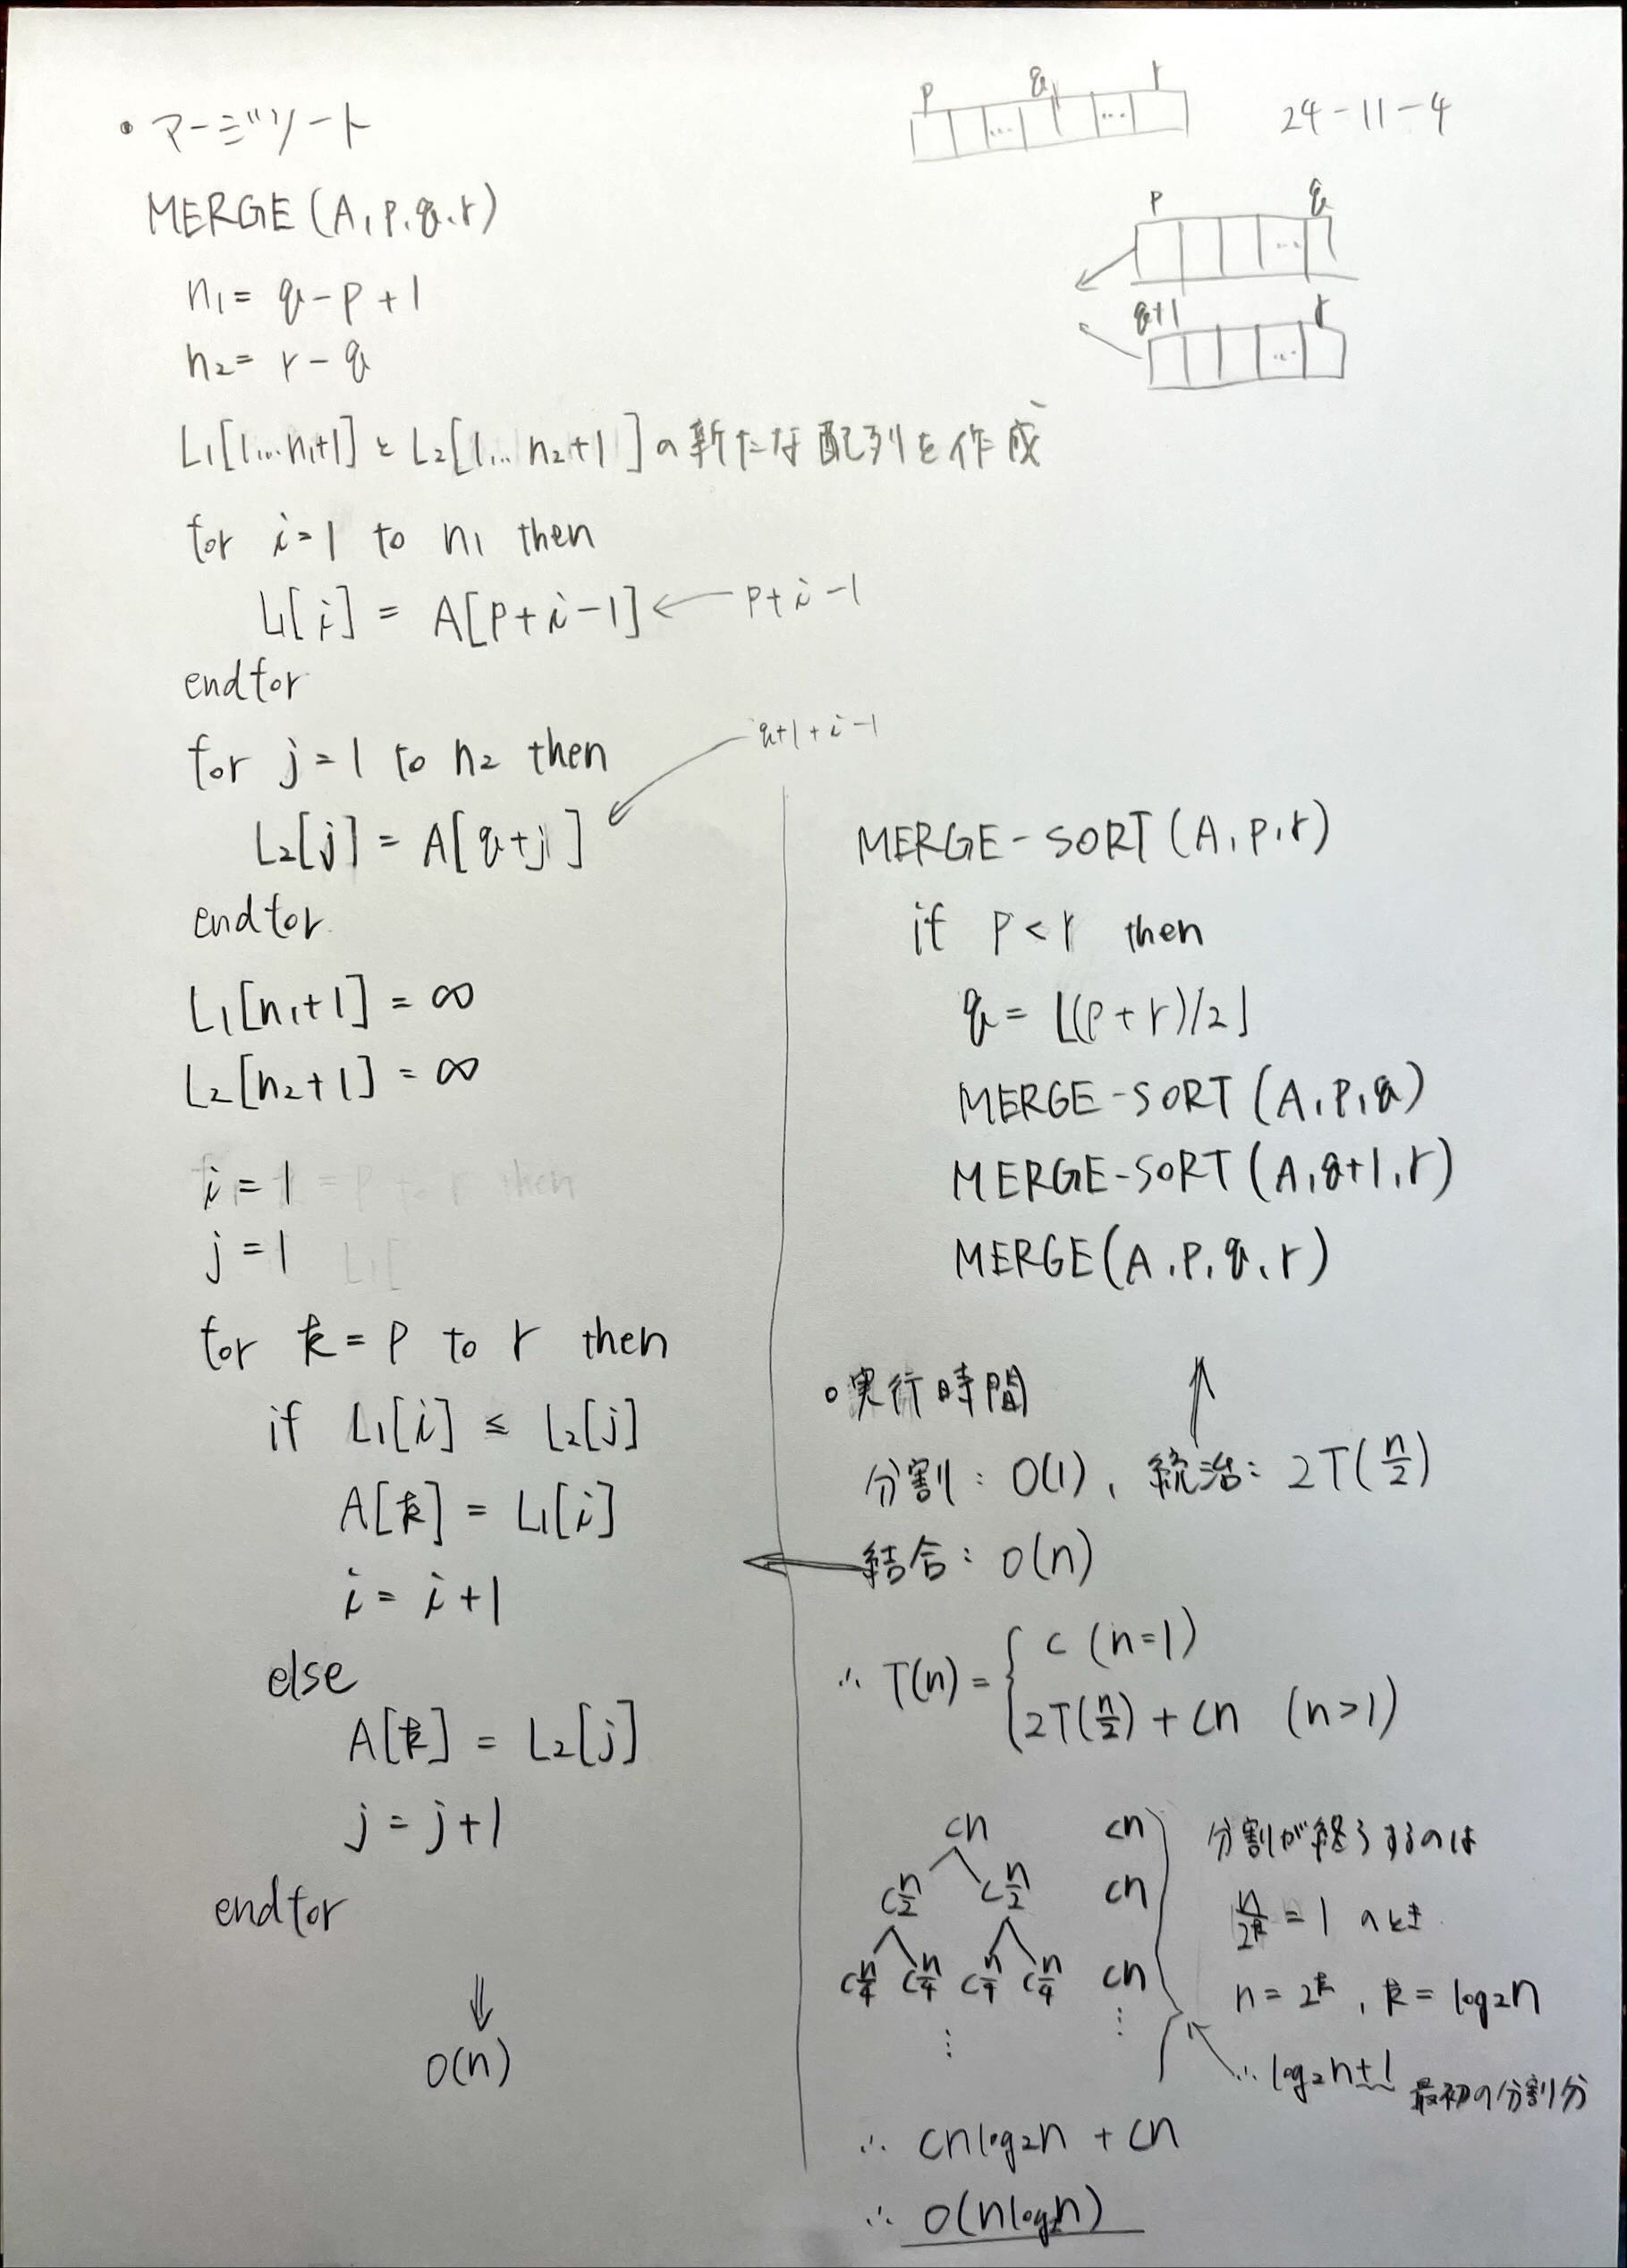 ・マージソート
24-11-4
p q r
p q
q+1 r
MERGE(A, p, q, r)
n₁ = q-p+1
n₂ = r-q
L₁[1...n₁+1]とL₂[1...n₂+1]の新たな配列を作成
for i=1 to n₁ then
L₁[i] = A[p+i-1] ← p+i-1
endfor
for j=1 to n₂ then
q+1+i-1
L₂[j] = A[q+j]
endfor
L₁[n₁+1] = ∞
L₂[n₂+1] = ∞
i=1
j=1
for k=p to r then
if L₁[i] ≤ L₂[j]
A[k] = L₁[i]
i = i+1
else
A[k] = L₂[j]
j = j+1
endfor
⇓
O(n)
MERGE-SORT(A, p, r)
if p<r then
q = ⌊(p+r)/2⌋
MERGE-SORT(A, p, q)
MERGE-SORT(A, q+1, r)
MERGE(A, p, q, r)
○実行時間 ⇑
分割: O(1), 統治: 2T(n/2)
⇐ 結合: O(n)
∴ T(n) = { c (n=1)
2T(n/2) + cn (n>1)
cn cn
c n/2 c n/2 cn
c n/4 c n/4 c n/4 c n/4 cn
⋮ ⋮
分割が終了するのは
n/2ᵏ = 1 のとき
n = 2ᵏ, k = log₂n
∴ log₂n+1 最初の分割分
∴ cnlog₂n + cn
∴ O(nlog₂n)